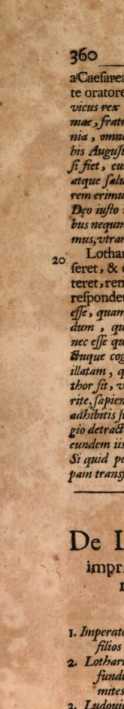 360
a Caesarea
te oratore
vicus rex
mae, fratr
nia, omni
bis August
si fiet, eu
atque salu
rem erimu
Deo iusto
bus nequm
mus, vtram
Lothar
20
feret, & 
teret, rem
responde
esse, quam
dum, qu
nec esse qu
que cog
illatam, q
thor sit, v
rite, sapien
adhibitis s
gio detract
eundem iis
Si quid pe
pam trans
De L
impr
1. Imperato
filios
2. Lothari
fundi
mites
3. Ludouic